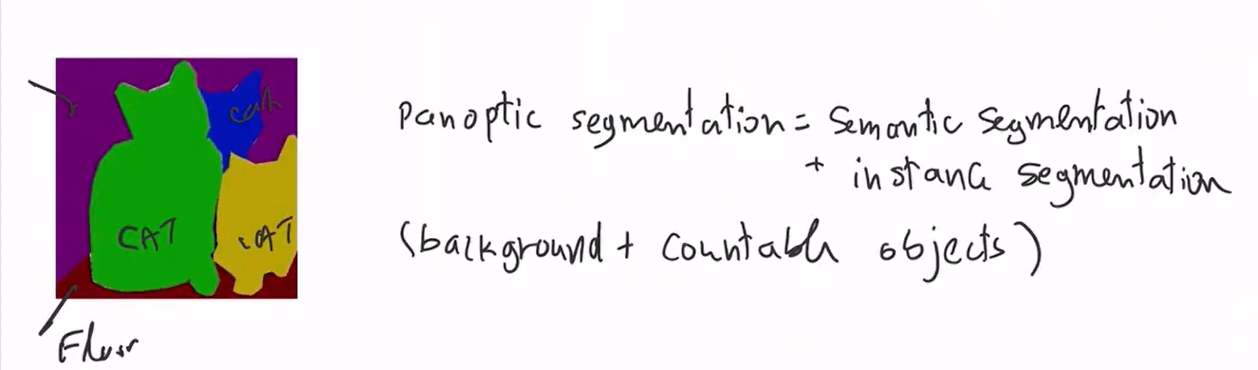 cat
CAT
CAT
Floor
Panoptic segmentation = Semantic segmentation
+ instance segmentation
(background + countable objects)